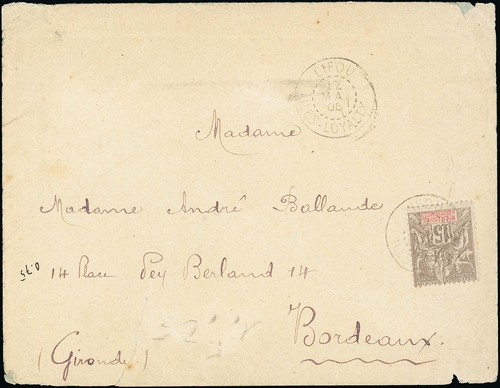 LIFOU
17
MAI
05
ILES-LOYALTY
Madame
Madame André Ballande
14 Place Pey Berland 14
Bordeaux.
(Gironde)
15